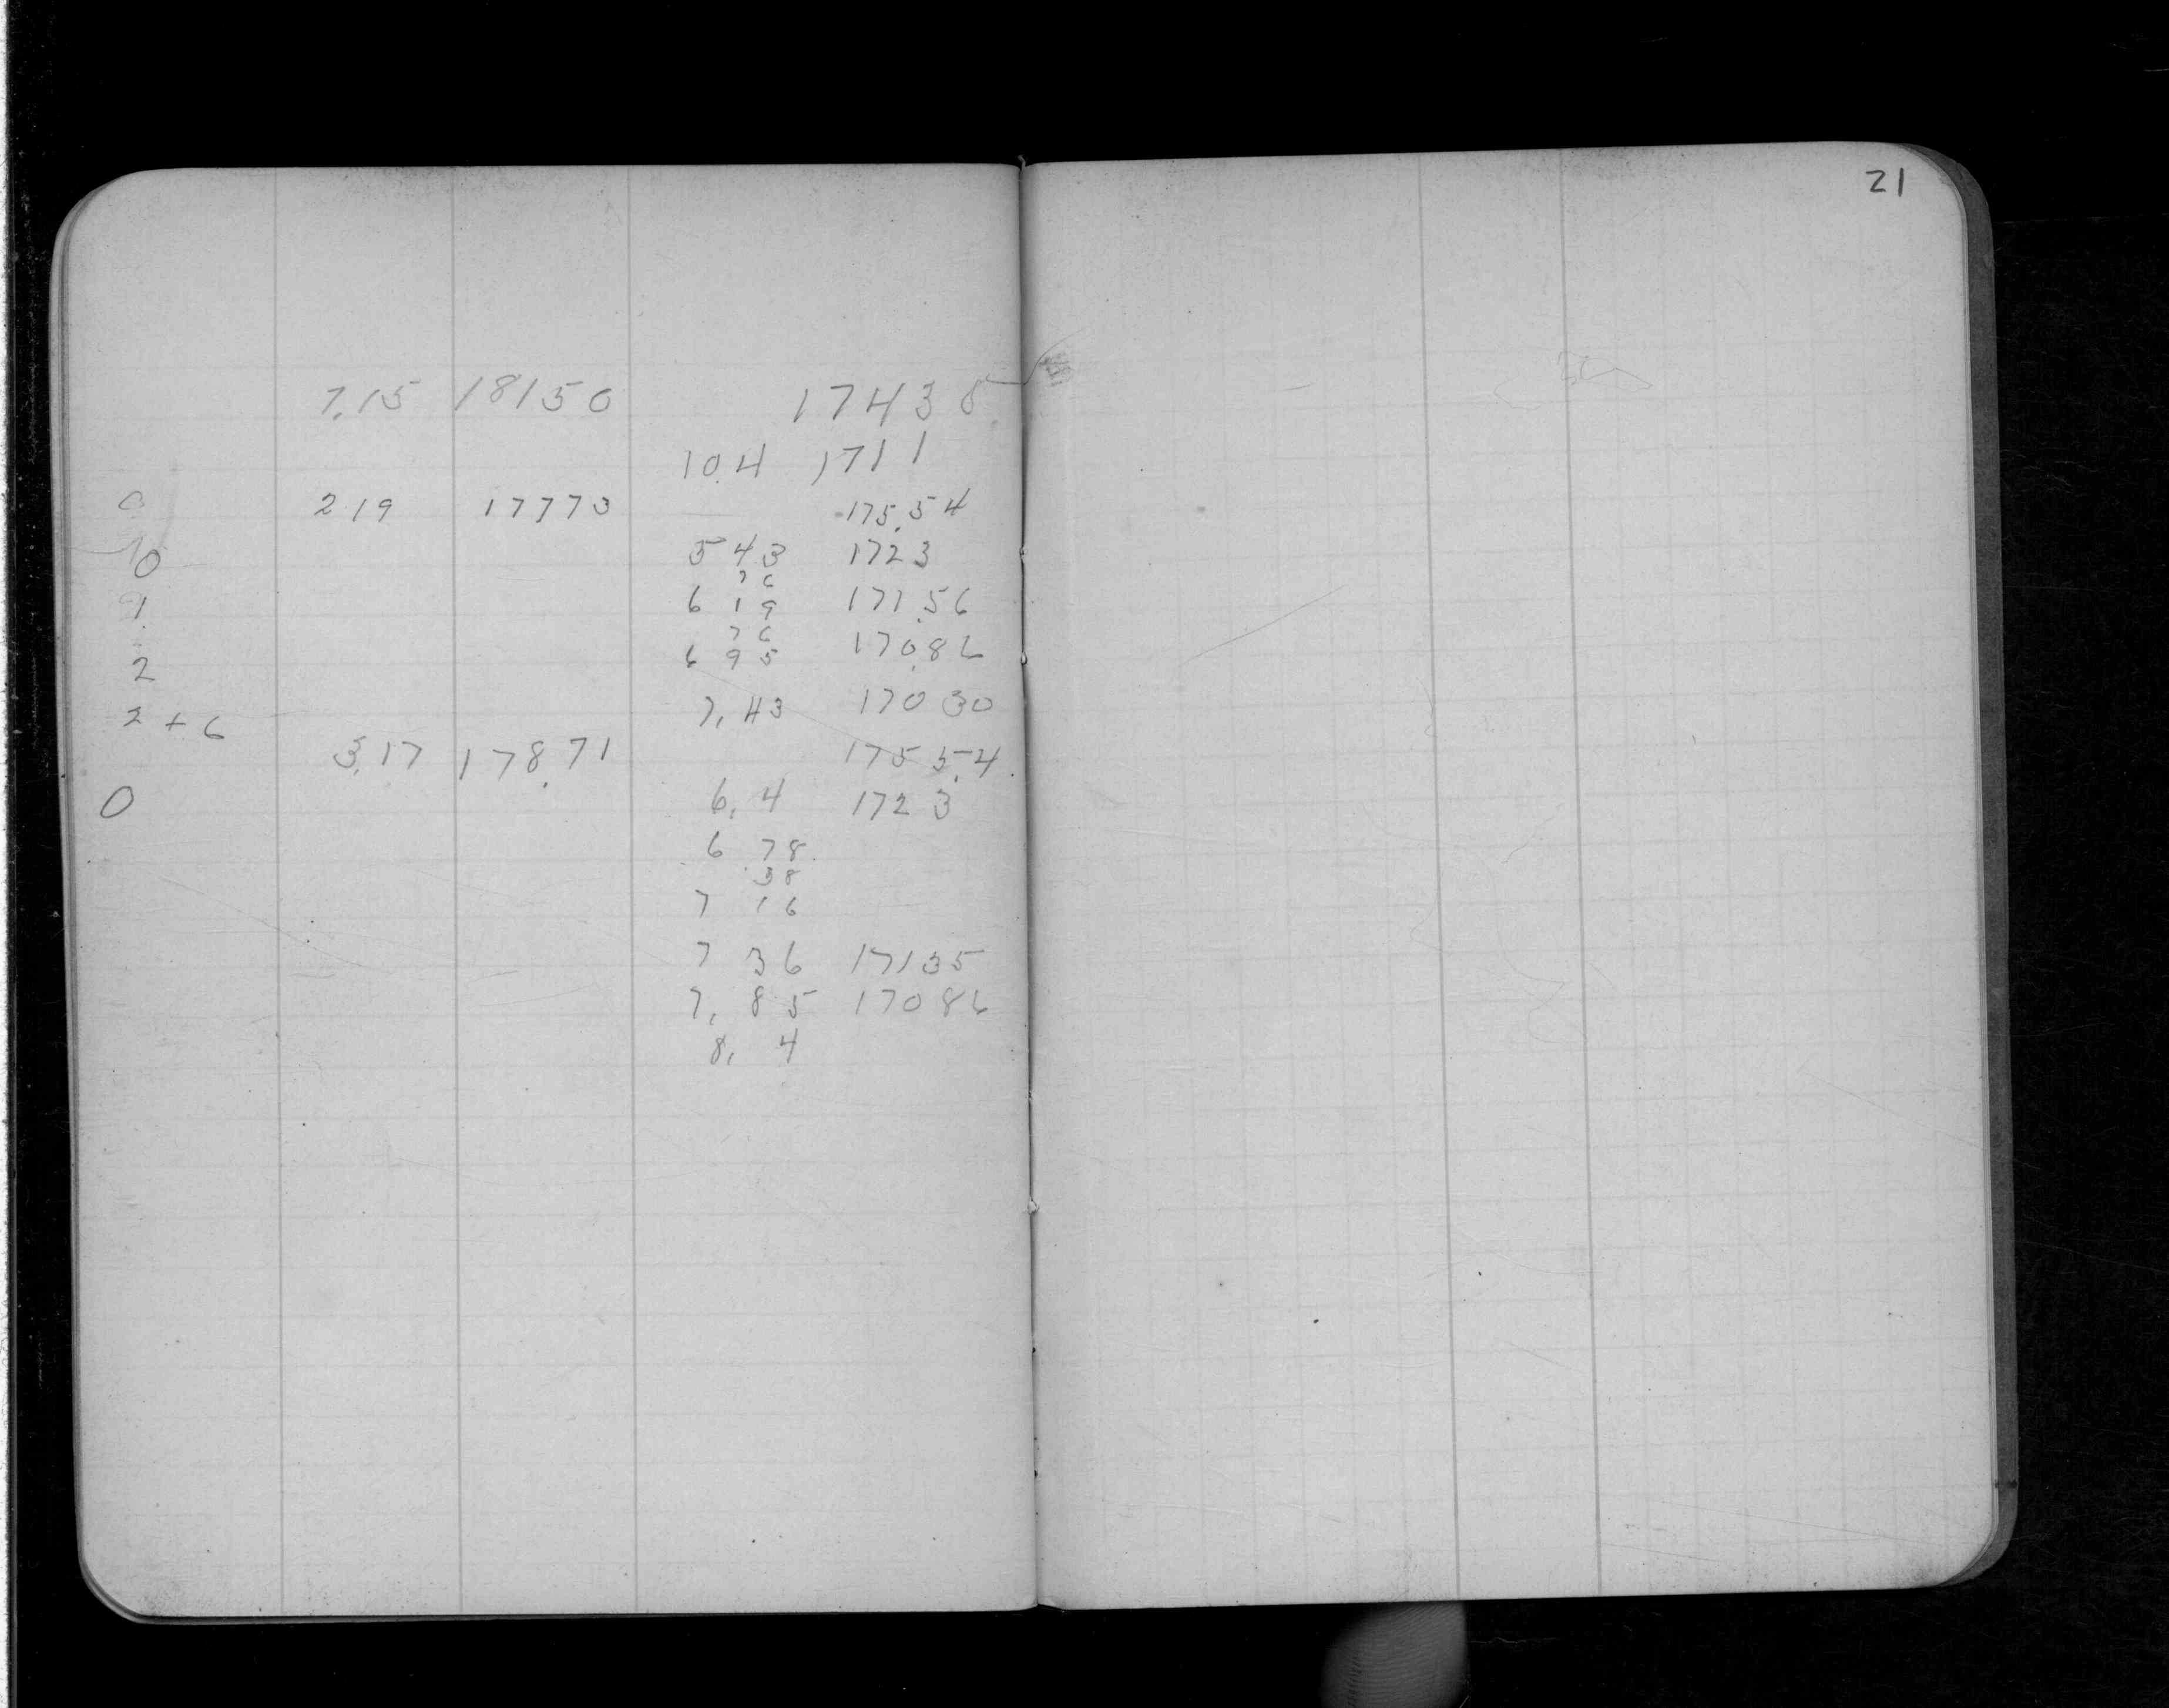 21
7.15 18150 17435
10.4 1711
0 2 19 17773 175.54
0 5 43 1723
7 6
1 6 19 171.56
7 6
2 6 95 170.86
2 + 6 7.43 170 30
3.17 178.71 175 5.4
0 6.4 172 3
6 78
38
7 16
7 36 17135
7.85 17086
8. 4